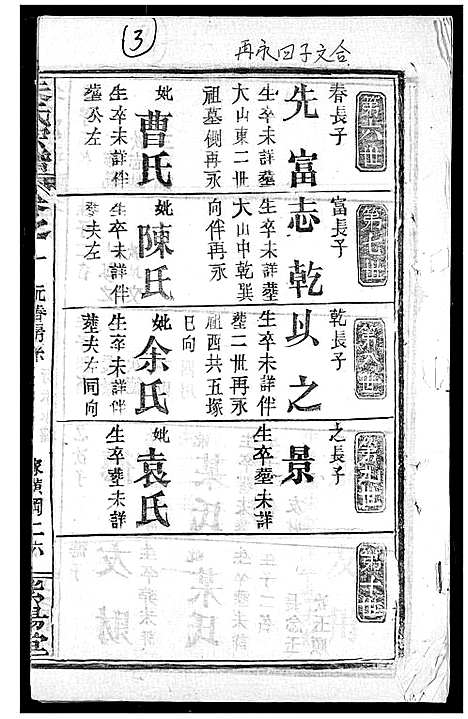 3
再永四子文合
第六世
春長子
先富
生卒未詳塟
大山東二世
祖墓側再永
妣曹氏
生卒未詳伴
塟癸左
第七世
富長子
志乾
生卒未詳塟
大山中乾巽
向伴再永
妣陳氏
生卒未詳伴
塟夫左
第八世
乾長子
以之
生卒未詳伴
塟二世再永
祖酉共五塚
巳向
妣余氏
生卒未詳伴
塟夫左同向
第九世
之長子
景
生卒塟未詳
妣袁氏
生卒塟未詳
第十世